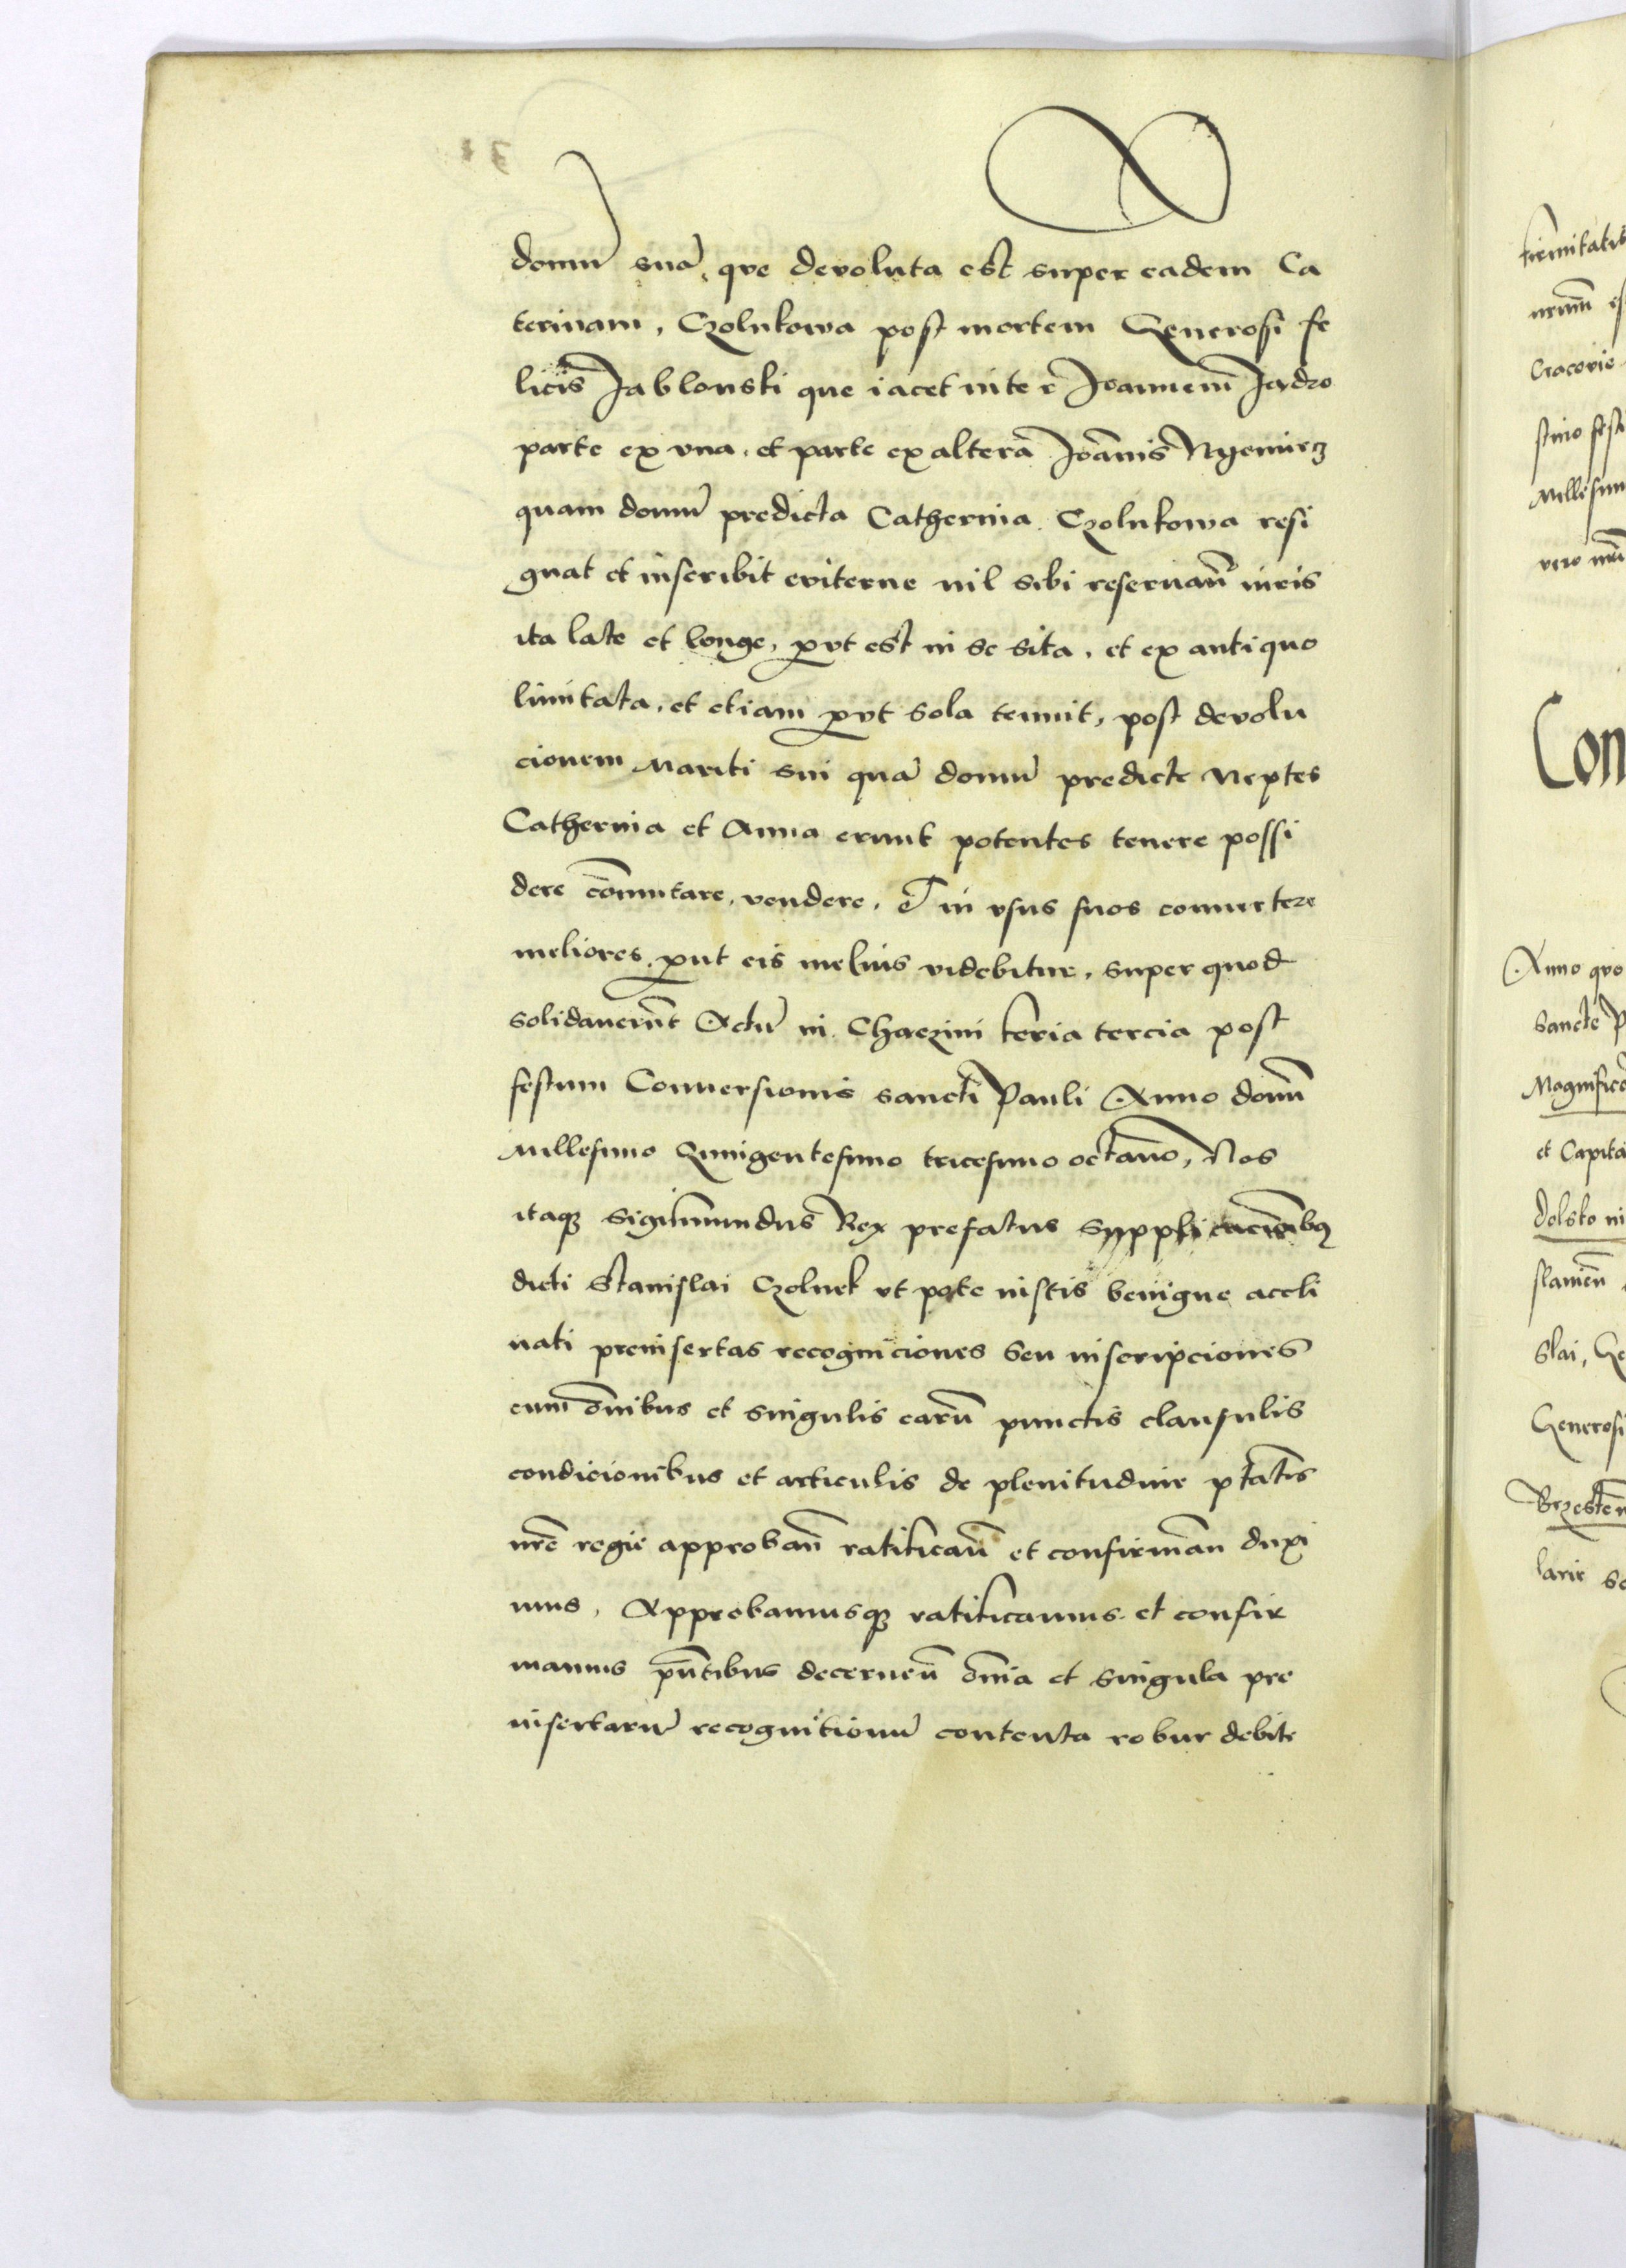 domū suā, que devoluta est super eadem Ca
terinam, Czolnkowa post mortem Generosi fe
licis Jablonski que iacet inter Joannem Jadro
parte ex vna, et parte ex alterā Joānis Nyemiecz
quam domū predicta Catherina Czolnkowa resi
gnat et inscribit eviterne nil sibi reseruan̄ iuris
ita late et longe, ꝓvt est in se sita, et ex antiquo
limitata, et etiam ꝓvt sola tenuit, post devolu
cionem mariti sui quā domū predicte neptes
Catherina et Anna erunt potentes tenere possi
dere cōmutare, vendere, et in vsus suos conuertere
meliores, ꝓut eis melius videbitur, super quod
solidauerūt Actū in Chaczini feria tercia post
festum Conuersionis sancti Pauli Anno domī
millesimo Quingentesimo tricesimo octauo, Nos
itaqꝫ Sigismundus Rex prefatus supplicacionibꝫ
dicti Stanislai Czolnek vt pote iustis benigne accli
nati preinsertas recogniciones seu inscripciones
cum om̄ibus et singulis earū punctis clausulis
condicionibus et articulis de plenitudine ptātis
nrē regie approban̄ ratifican̄ et confirman̄ duxi
mus, Approbamusqꝫ ratificamus et confir
mamus pn̄tibus decernen̄ om̄ia et singula pre
insertarū recognitionū contenta robur debite
firmitatis
Cracovie
Con
Anno quo
sancte
et Capita
slai, Ge
Generosi